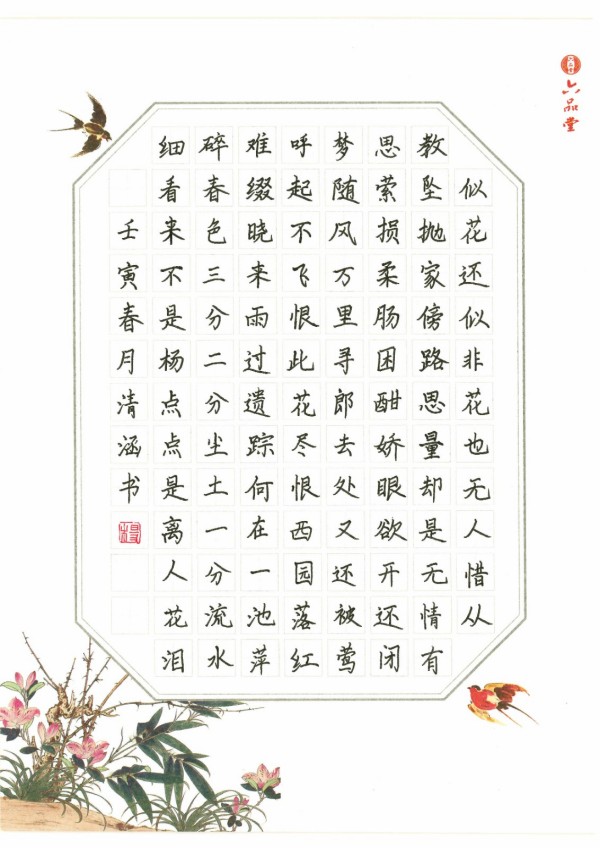 六品堂
似花还似非花也无人惜从
教坠抛家傍路思量却是无情有
思萦损柔肠困酣娇眼欲开还闭
梦随风万里寻郎去处又还被莺
呼起不飞恨此花尽恨西园落红
难缀晓来雨过遗踪何在一池萍
碎春色三分二分尘土一分流水
细看来不是杨点点是离人花泪
壬寅春月清涵书